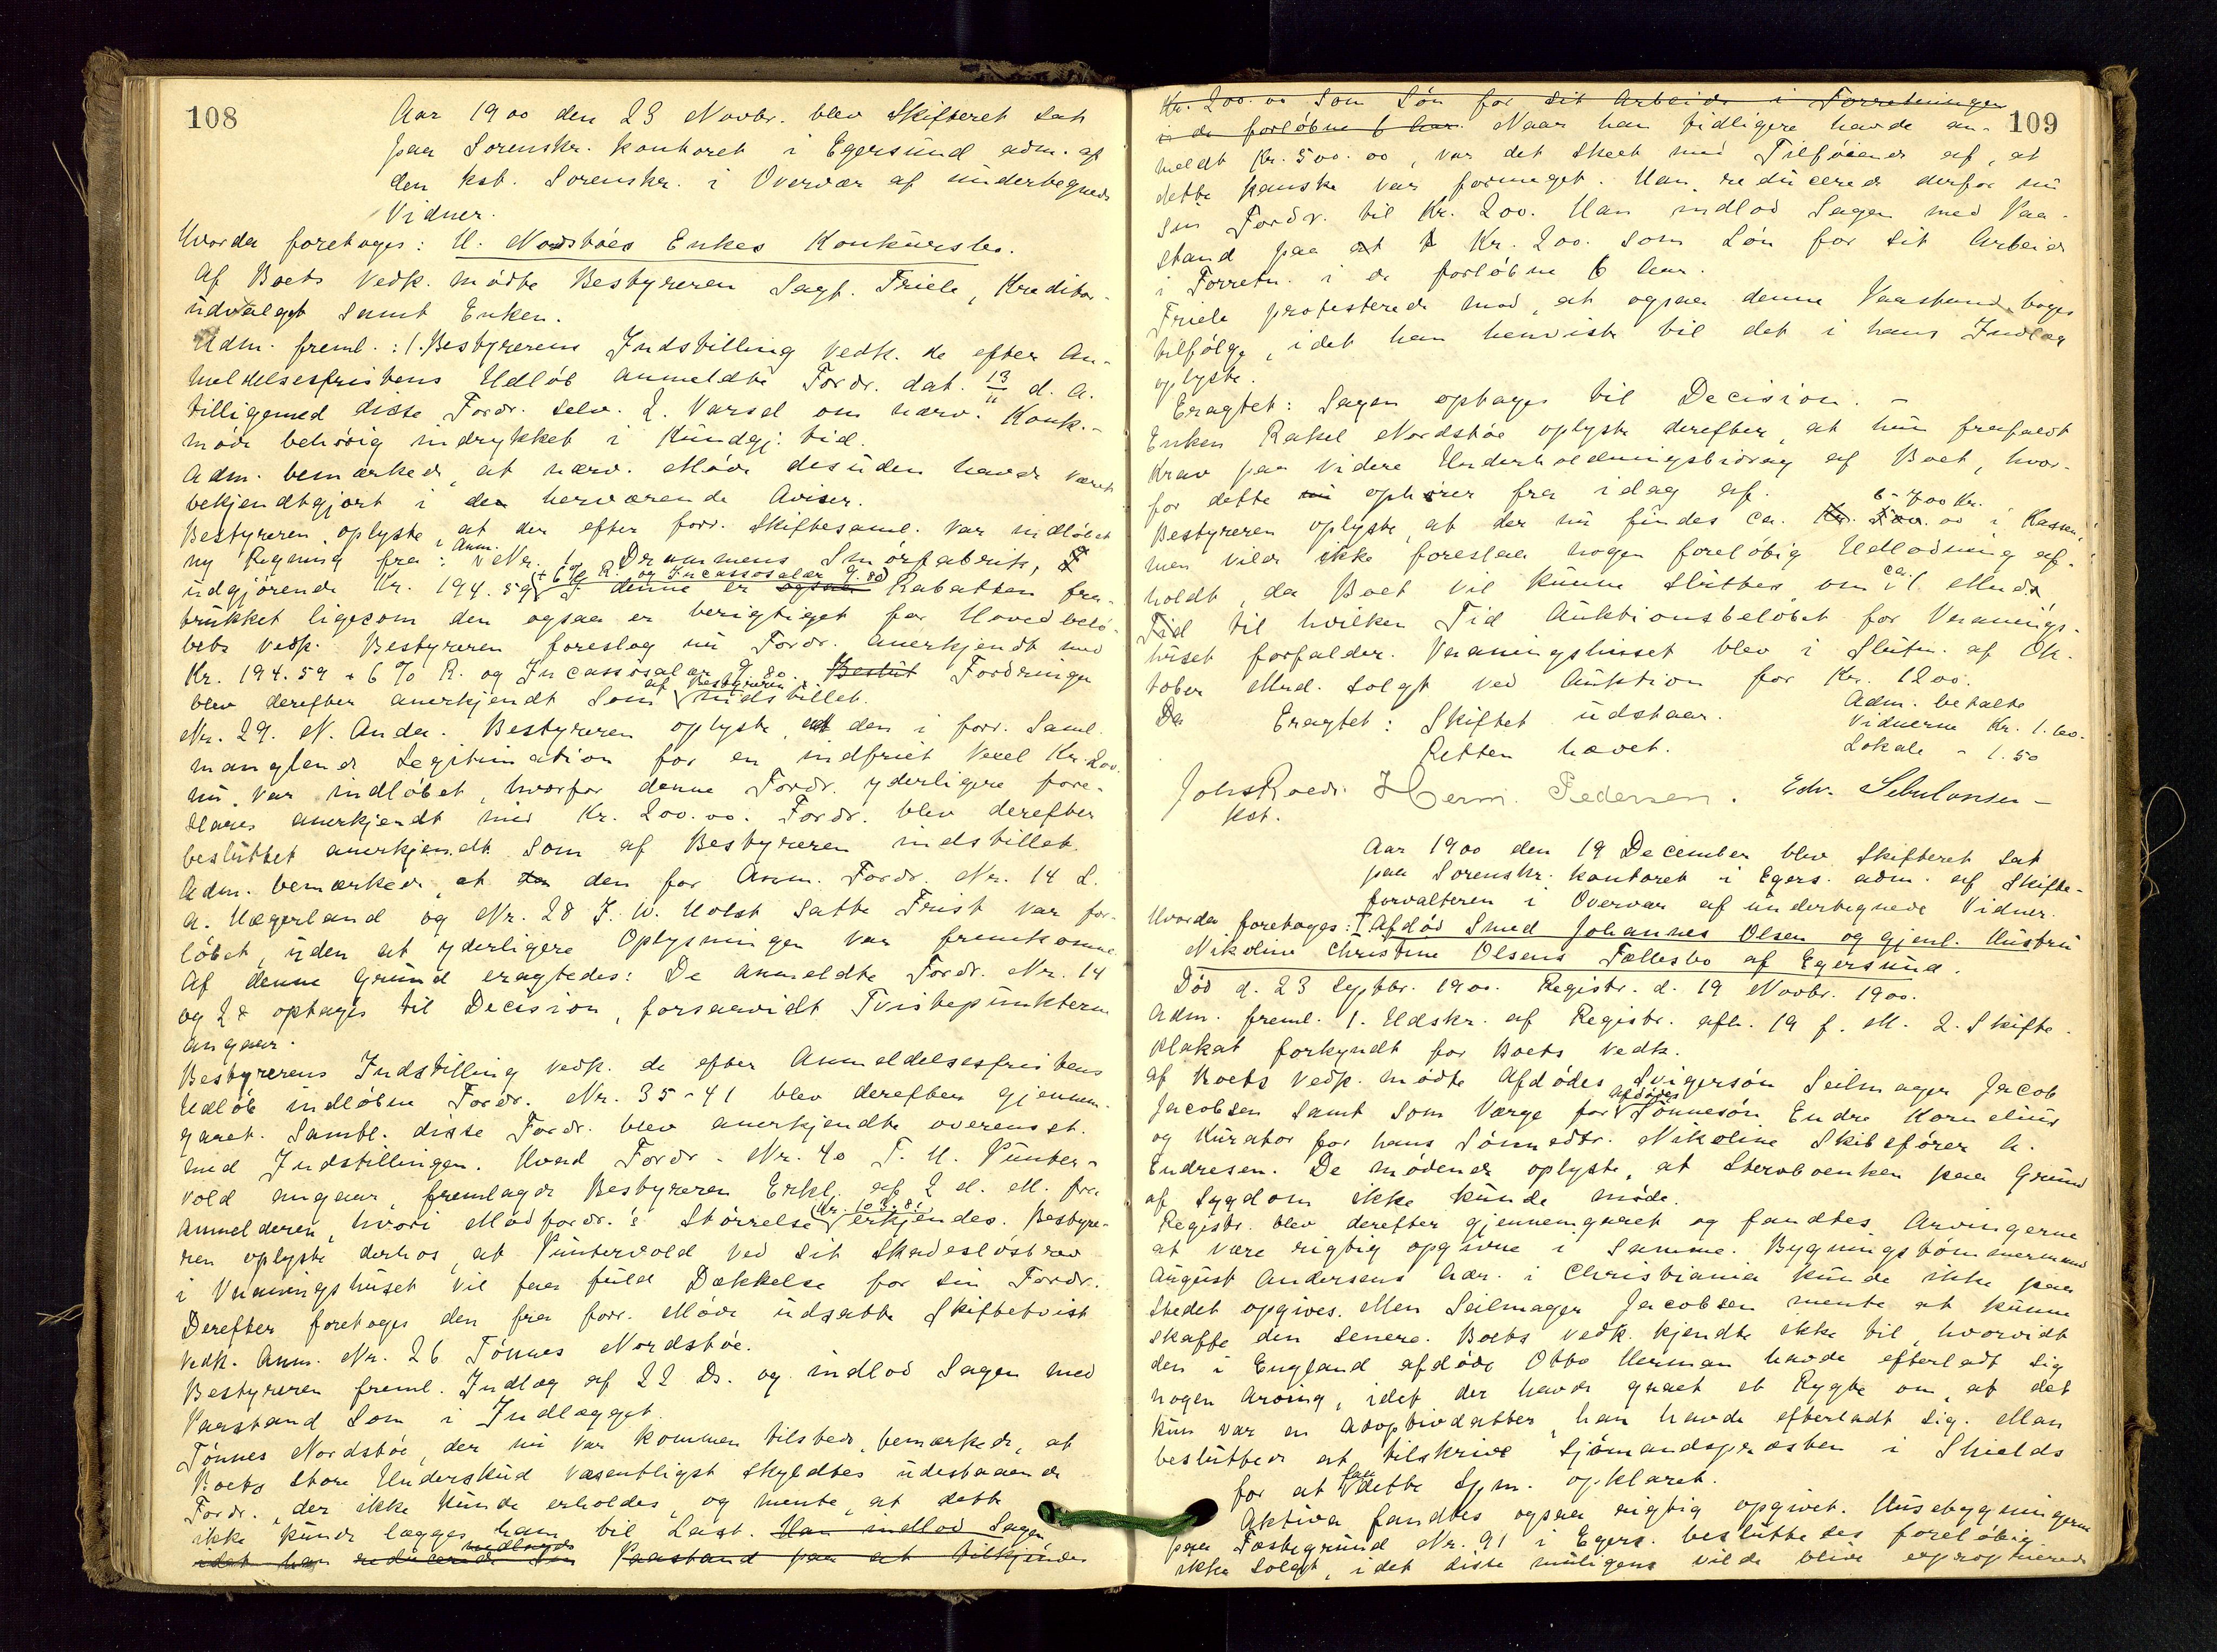 108
Aar 1900 den 23 Novbr. blev Skifteret sat
paa Sorenskr. kontoret i Egersund adm. af
den kst. Sorenskr. i Overvær af undertegnede
Vidner.
Hvorda foretoges: H. Nordstøes Enkes Konkursbo.
Af Boets Vedk. mødte Bestyreren Sagf. Friele, Kreditor-
udvalget samt Enken.
Adm. freml.: 1. Bestyrerens Indstilling vedk. de efter An-
meldelsesfristens Udløb anmeldte Fordr. dat. 13/11 d. A.
tilligemed disse Fordr. selv. 2. Varsel om nærv. Konk.-
møde behørig indrykket i Kundgj. tid.
Adm. bemærkede, at nærv. Møde desuden havde været
bekjendtgjort i de herværende Aviser.
Bestyreren oplyste, at der efter forr. Skiftesaml. var indløbet
ny Regning fra: Anm. Nr. 1 Drammens Smørfabrik,
udgjørende Kr. 194.59 + 6% R. og Incassosalær 9.80. I denne er ogsaa Rabatten fra-
trukket ligesom den ogsaa er berigtiget for Hovedbelø-
bets vedk. Bestyreren foreslog nu Fordr. anerkjendt med
Kr. 194.59 + 6 % R. og Incassosalær 9.80. Beslut Fordringen
blev derefter anerkjendt som af Bestyreren indstillet.
Nr. 29. N. Anda. Bestyreren oplyste, at den i forr. Saml.
manglende Legitimation for en indfriet Vexel Kr. 200.
nu var indløbet, hvorfor denne Fordr. yderligere fore-
sloges anerkjendt med Kr. 200.00. Fordr. blev derefter
besluttet anerkjendt som af Bestyreren indstillet.
Adm. bemærkede, at den for Anm. Fordr. Nr. 14 L.
A. Hægerland og Nr. 28 J. W. Holst satte Frist var for-
løbet, uden at yderligere Oplysninger var fremkomne.
Af denne Grund eragtedes: De anmeldte Fordr. Nr. 14
og 28 optages til Decision, forsaavidt Tvistepunkterne
angaar.
Bestyrerens Indstilling vedk. de efter Anmeldelsesfristens
Udløb indløbne Fordr. Nr. 35-41 blev derefter gjennem-
gaaet. Samtl. disse Fordr. blev anerkjendte overensst.
med Indstillingen. Hvad Fordr. Nr. 40 T. H. Puntervold
vold angaar, fremlagde Bestyreren Erkl. af 2 d. M. fra
Anmelderen, hvori Modfordr.'s Størrelse Kr. 103.81 erkjendes. Bestyre-
ren oplyste derhos, at Puntervold ved sit Skadesløsbrev
i Vaaningshuset vil faa fuld Dækkelse for sin Fordr.
Derefter foretoges den fra forr. Møde udsatte Skiftetvist
vedk. Anm. Nr. 26 Tønnes Nordstøe.
Bestyreren freml. Indlæg af 22 Ds. og indlod Sagen med
Paastand som i Indlægget.
Tønnes Nordstøe, der nu var kommen tilstede, bemærkede, at
Boets store Underskud væsentligst skyldtes udestaaende
Fordr., der ikke kunde erholdes, og mente, at dette
ikke kunde lægges ham til Last. Han indlod Sagen
idet han reducerede sin nedlagde Paastand paa at tilkjendes
109
Kr. 200.00 som Løn for sit Arbeide i Forretningen
i de forløbne 6 Aar. Naar han tidligere havde an-
meldt Kr. 500.00, var det skeet med Tilføiende af, at
dette kanske var formeget. Han reducerede derfor nu
sin Fordr. til Kr. 200. Han indlod Sagen med Paa-
stand paa Kr. 200. som Løn for sit Arbeide
i Forretn. i de forløbne 6 Aar.
Friele protesterede mod, at ogsaa denne Paastand toges
tilfølge, idet han henviste til det i hans Indlæg
oplyste.
Eragtet: Sagen optages til Decision. –
Enken Rakel Nordstøe oplyste derefter, at hun frafaldt
Krav paa videre Underholdningsbidrag af Boet, hvor-
for dette ophører fra idag af.
Bestyreren oplyste, at der nu findes ca. 6-700 Kr. i Kassen,
men vilde ikke foreslaa nogen foreløbig Udlodning af-
holdt, da Boet vil kunne sluttes om ca. 1 Mnds
Tid til hvilken Tid Auktionsbeløbet for Vaanings-
huset forfalder. Vaaningshuset blev i Slutn. af Ok-
tober Mnd. solgt ved Auktion for Kr. 1200.
Eragtet: Skiftet udstaar.
Retten hævet.
Adm. betalte
Vidnerne Kr. 1.60.
Lokale - 1.50
Johs Roed. Herm. Pedersen. Edv. Sebulonsen –
kst.
Aar 1900 den 19 December blev Skifteret sat
paa Sorenskr. kontoret i Egers. adm. af Skifte-
forvalteren i Overvær af undertegnede Vidner.
Hvorda foretoges: I Afdød Smed Johannes Olsen og gjenl. Hustru
Nikoline Christine Olsens Fællesbo af Egersund.
Død d. 23 Septbr. 1900. Registr. d. 19 Novbr. 1900.
Adm. freml. 1. Udskr. af Registr. afh. 19 f. M. 2. Skifte-
plakat forkyndt for Boets Vedk.
Af Boets Vedk. mødte Afdødes Svigersøn Seilmager Jacob
Jacobsen samt som Værge for afdødes Sønnesøn Endre Kornelius
og Kurator for hans Sønnedtr. Nikoline Skibsfører A.
Endresen. De mødende oplyste, at Stervboenken paa Grund
af Sygdom ikke kunde møde.
Registr. blev derefter gjennemgaaet og fandtes Arvingerne
at være rigtig opgivne i samme. Bygningstømmermand
August Andersens Adr. i Christiania kunde ikke paa
Stedet opgives. Men Seilmager Jacobsen mente at kunne
skaffe den senere. Boets Vedk. kjendte ikke til, hvorvidt
den i England afdøde Otto Herman havde efterladt sig
nogen Arving, idet der havde gaaet et Rygte om, at det
kun var en Adoptivdatter, han havde efterladt sig. Man
besluttede at tilskrive Sjømandspræsten i Shields
for at faa dette Spm. opklaret.
Aktiva fandtes ogsaa rigtig opgivet. Husebygningerne
paa Fæstegrund Nr. 91 i Egers. besluttedes foreløbig
ikke solgt, idet disse muligens vilde blive exproprierede